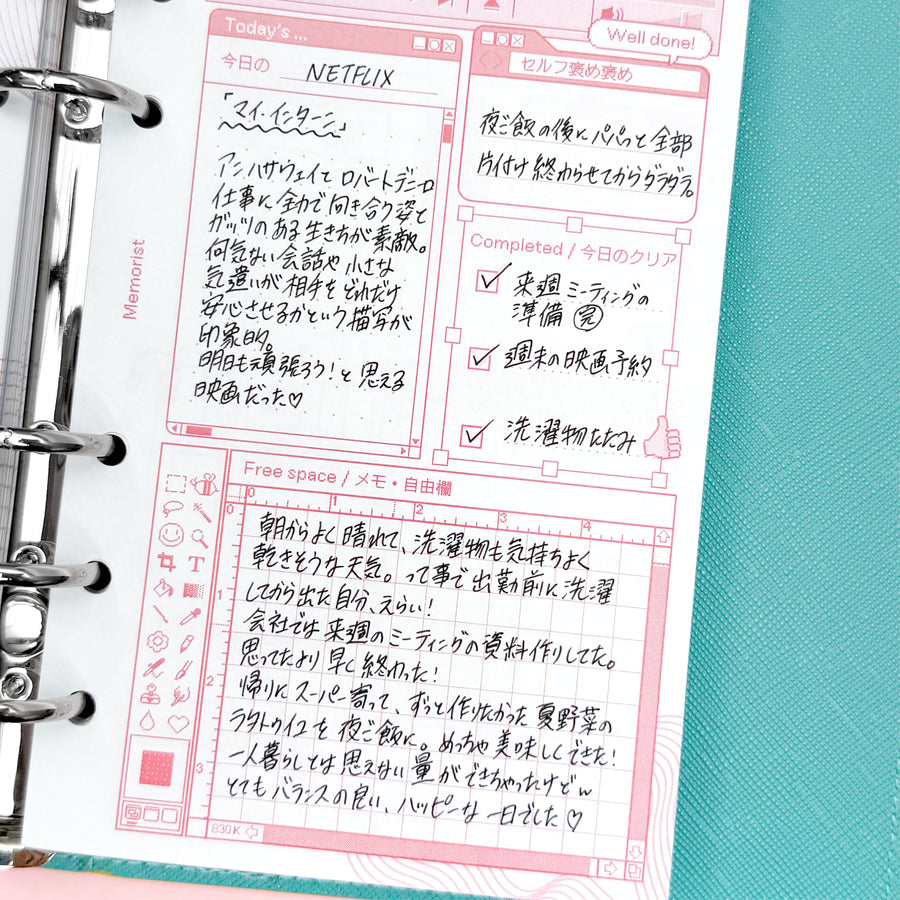 Today's ...
今日の NETFLIX
「マイ・インターン」
アン ハサウェイと ロバートデニーロ
仕事に全力で向き合う姿と
ガッツのある生き方が素敵。
何気ない会話や小さな
気遣いが相手をどれだけ
安心させるかという描写が
印象的。
明日も頑張ろう!と思える
映画だった♡
Well done!
セルフ褒め褒め
夜ご飯の後にパパっと全部
片付け終わらせてからダラダラ。
Completed / 今日のクリア
来週ミーティングの
準備 完
週末の映画予約
洗濯物たたみ
Memorist
Free space / メモ・自由欄
0 1 2 3 4
0
1
2
3
朝からよく晴れて、洗濯物も気持ちよく
乾きそうな天気。って事で出勤前に洗濯
してから出た自分、えらい!
会社では来週のミーティングの資料作りしてた。
思ってたより早く終わった!
帰りにスーパー寄って、ずっと作りたかった夏野菜の
ラタトゥイユを夜ご飯に。めっちゃ美味しくできた!
一人暮らしとは思えない量ができちゃったけどw
とてもバランスの良い、ハッピーな一日でした♡
T
830K